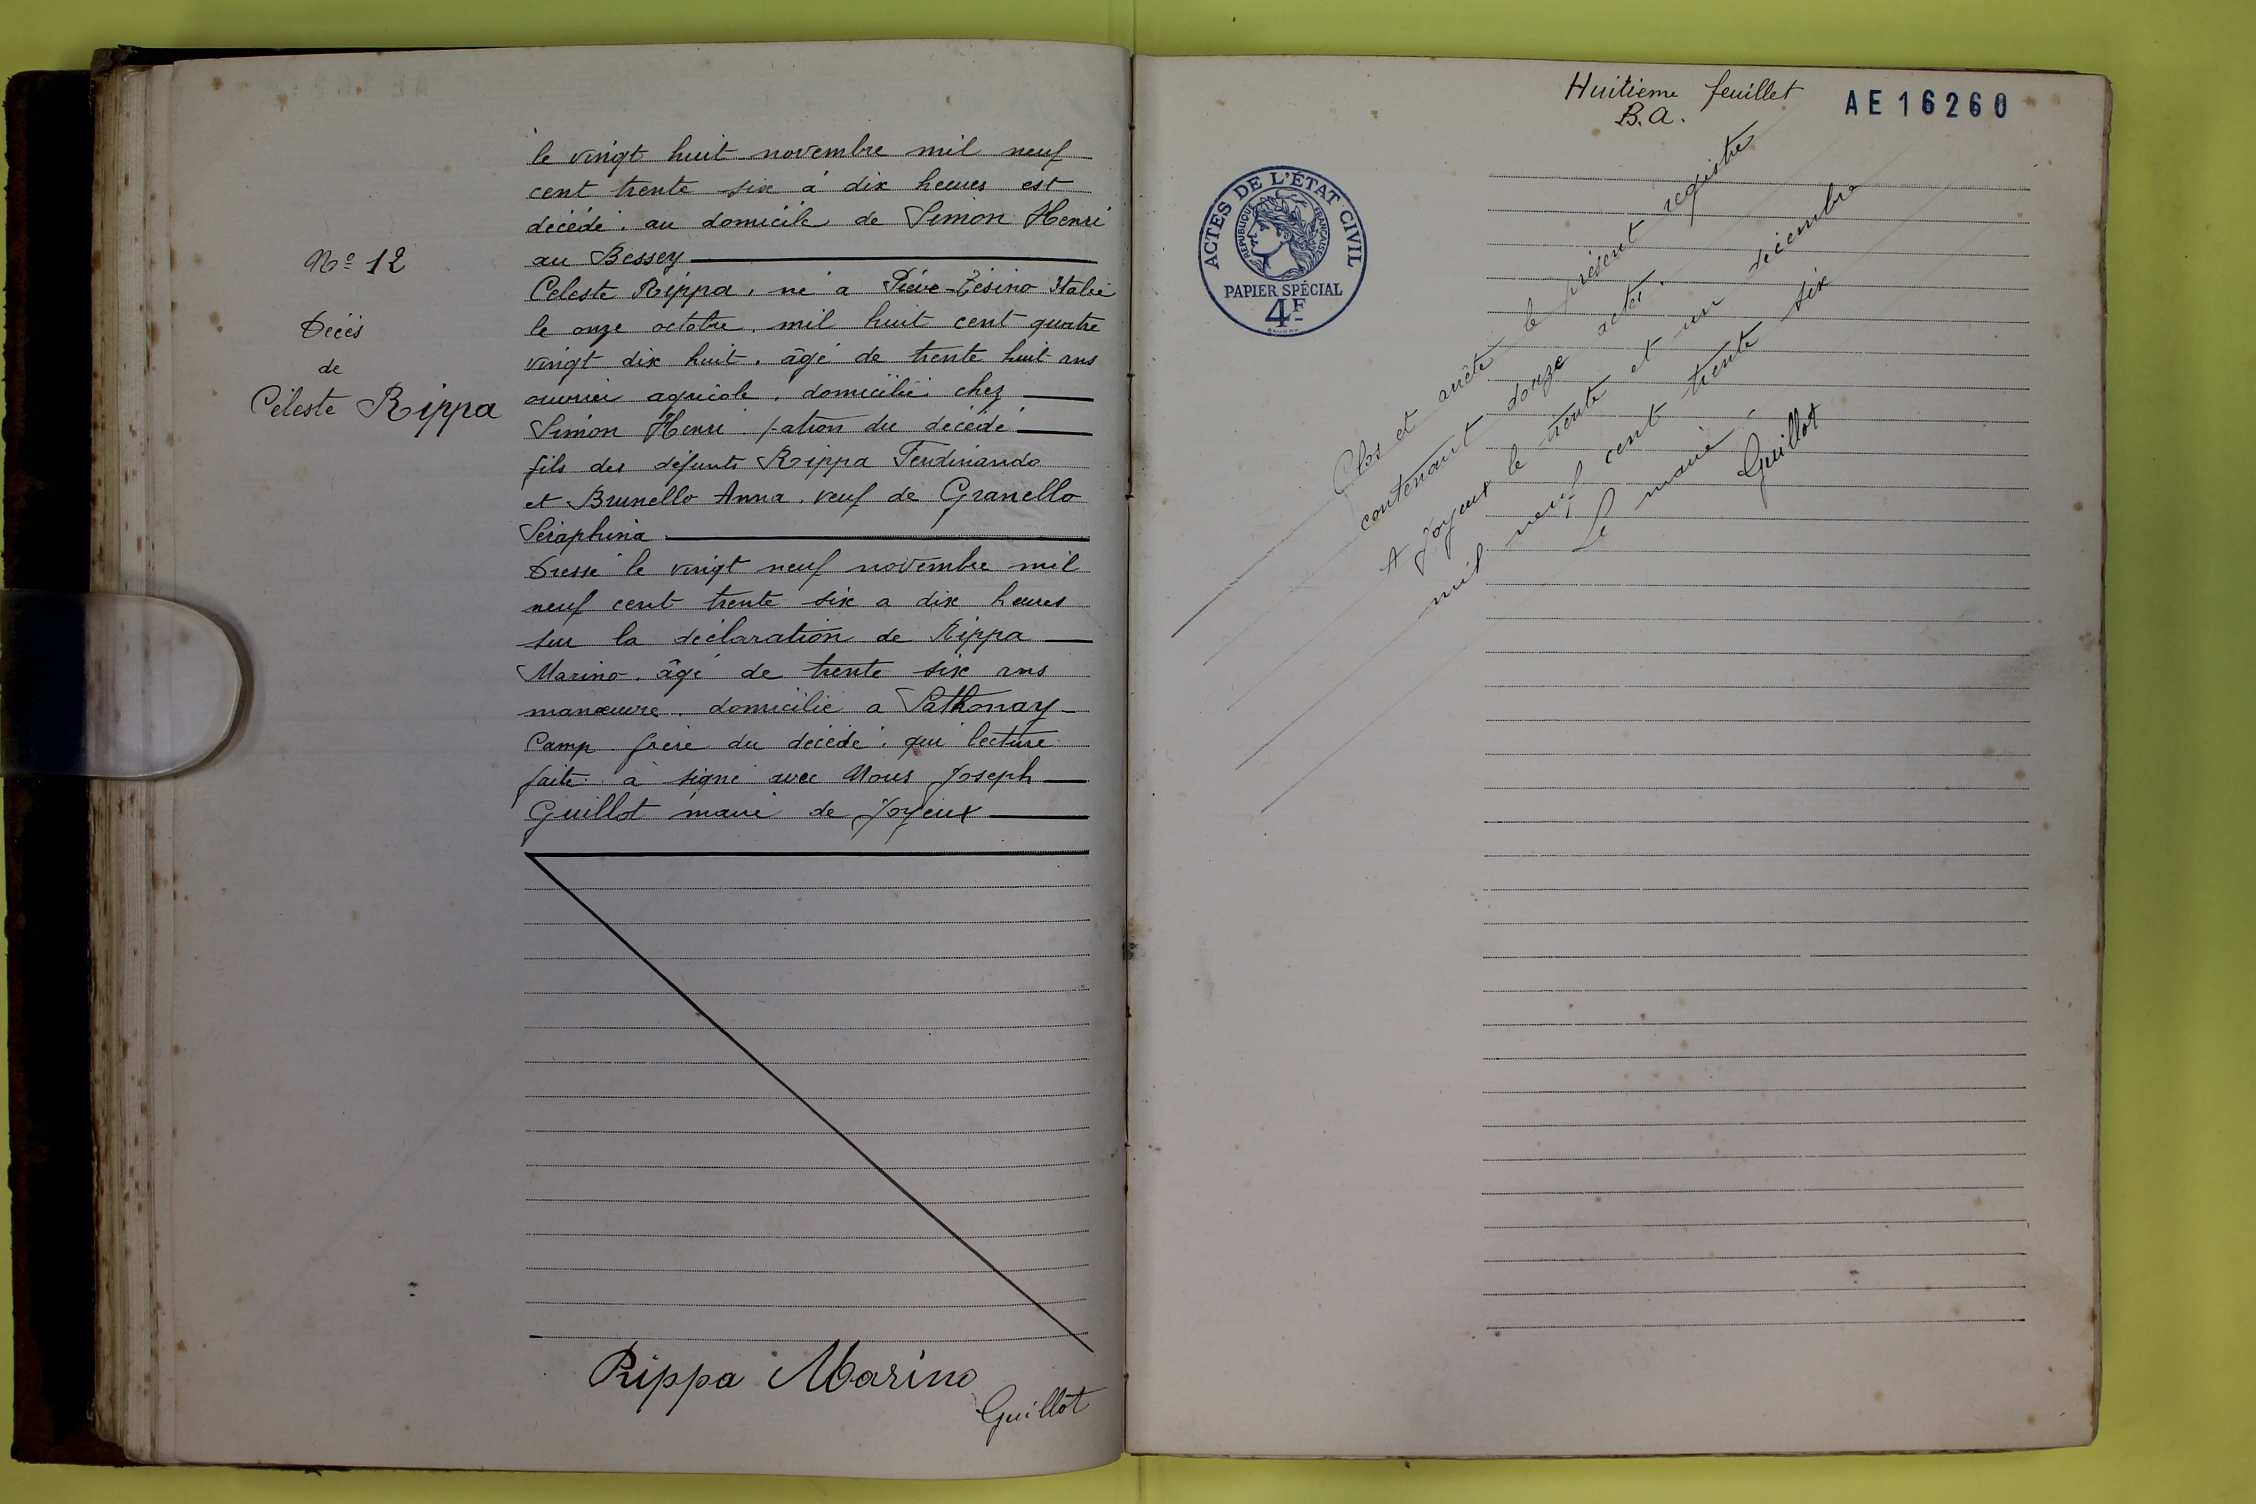 No 12
Décès
de
Céleste Rippa
le vingt huit novembre mil neuf
cent trente six à dix heures est
décédé. au domicile de Simon Henri
au Bessey
Céleste Rippa, né a Piève-Tésino Italie
le onze octobre, mil huit cent quatre
vingt dix huit. âgé de trente huit ans
ouvrier agricole. domicilié chez
Simon Henri patron du décédé
fils des défunts Rippa Ferdinando
et Brunello Anna. veuf de Granello
Séraphina
Dressé le vingt neuf novembre mil
neuf cent trente six a dix heures
sur la déclaration de Rippa
Marino. âgé de trente six ans
manœuvre. domicilié a Sathonay-
Camp frère du décédé. qui lecture
faite a signé avec Nous Joseph
Guillot maire de Joyeux
Rippa Marino
Guillot
Huitieme feuillet
B.A.
AE 16260
ACTES DE L'ÉTAT CIVIL
RÉPUBLIQUE FRANÇAISE
PAPIER SPÉCIAL
4F
Clos et arrêté le présent registre
contenant douze actes.
A Joyeux le trente et un décembre
mil neuf cent trente six
Le maire
Guillot